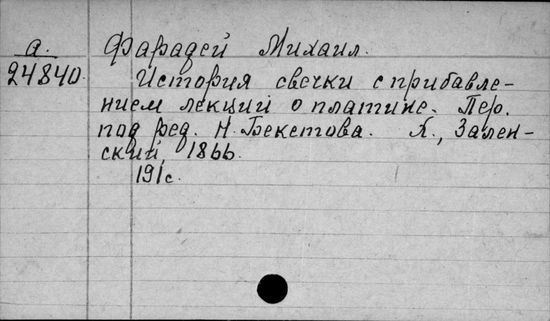 а.
24840.
Фарадей Михаил.
История свечки с прибавле-
нием лекции о платине. Пер.
под ред. Н. Бекетова. Х., Зален-
ский, 1866.
191с.